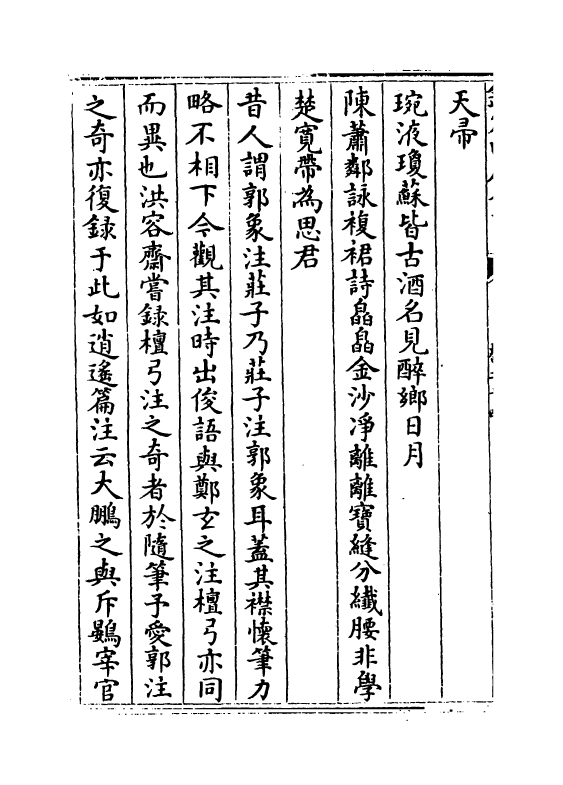 天帚
琬液瓊蘇皆古酒名見醉鄉日月
陳蕭鄰詠複裙詩皛皛金沙凈離離寶縫分纖腰非學
楚寛帶為思君
昔人謂郭象注莊子乃莊子注郭象耳蓋其襟懷筆力
略不相下今觀其注時出俊語與鄭玄之注檀弓亦同
而異也洪容齋嘗録檀弓注之奇者於隨筆予愛郭注
之奇亦復録于此如逍遙篇注云大鵬之與斥鷃宰官